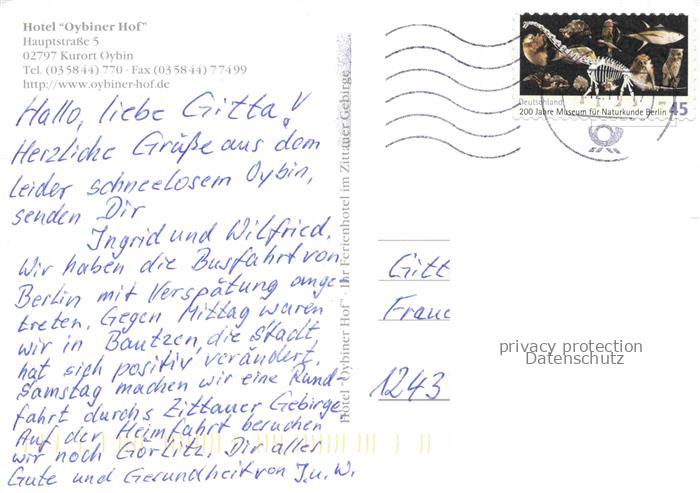 Hotel "Oybiner Hof"
Hauptstraße 5
02797 Kurort Oybin
Tel. (03 58 44) 770 · Fax (03 58 44) 7 74 99
http://www.oybiner-hof.de
Hallo, liebe Gitta!
Herzliche Grüße aus dem
leider schneelosem Oybin,
senden Dir
Ingrid und Wilfried.
Wir haben die Busfahrt von
Berlin mit Verspätung ange-
treten. Gegen Mittag waren
wir in Bautzen, die Stadt
hat sich positiv verändert.
Samstag machen wir eine Rund
fahrt durchs Zittauer Gebirge
Auf der Heimfahrt besuchen
wir noch Görlitz. Dir alles
Gute und Gesundheit von I. u. W.
Hotel "Oybiner Hof" · Ihr Ferienhotel im Zittauer Gebirge
Deutschland
200 Jahre Museum für Naturkunde Berlin
45
Gitt
Frau
1243
privacy protection
Datenschutz